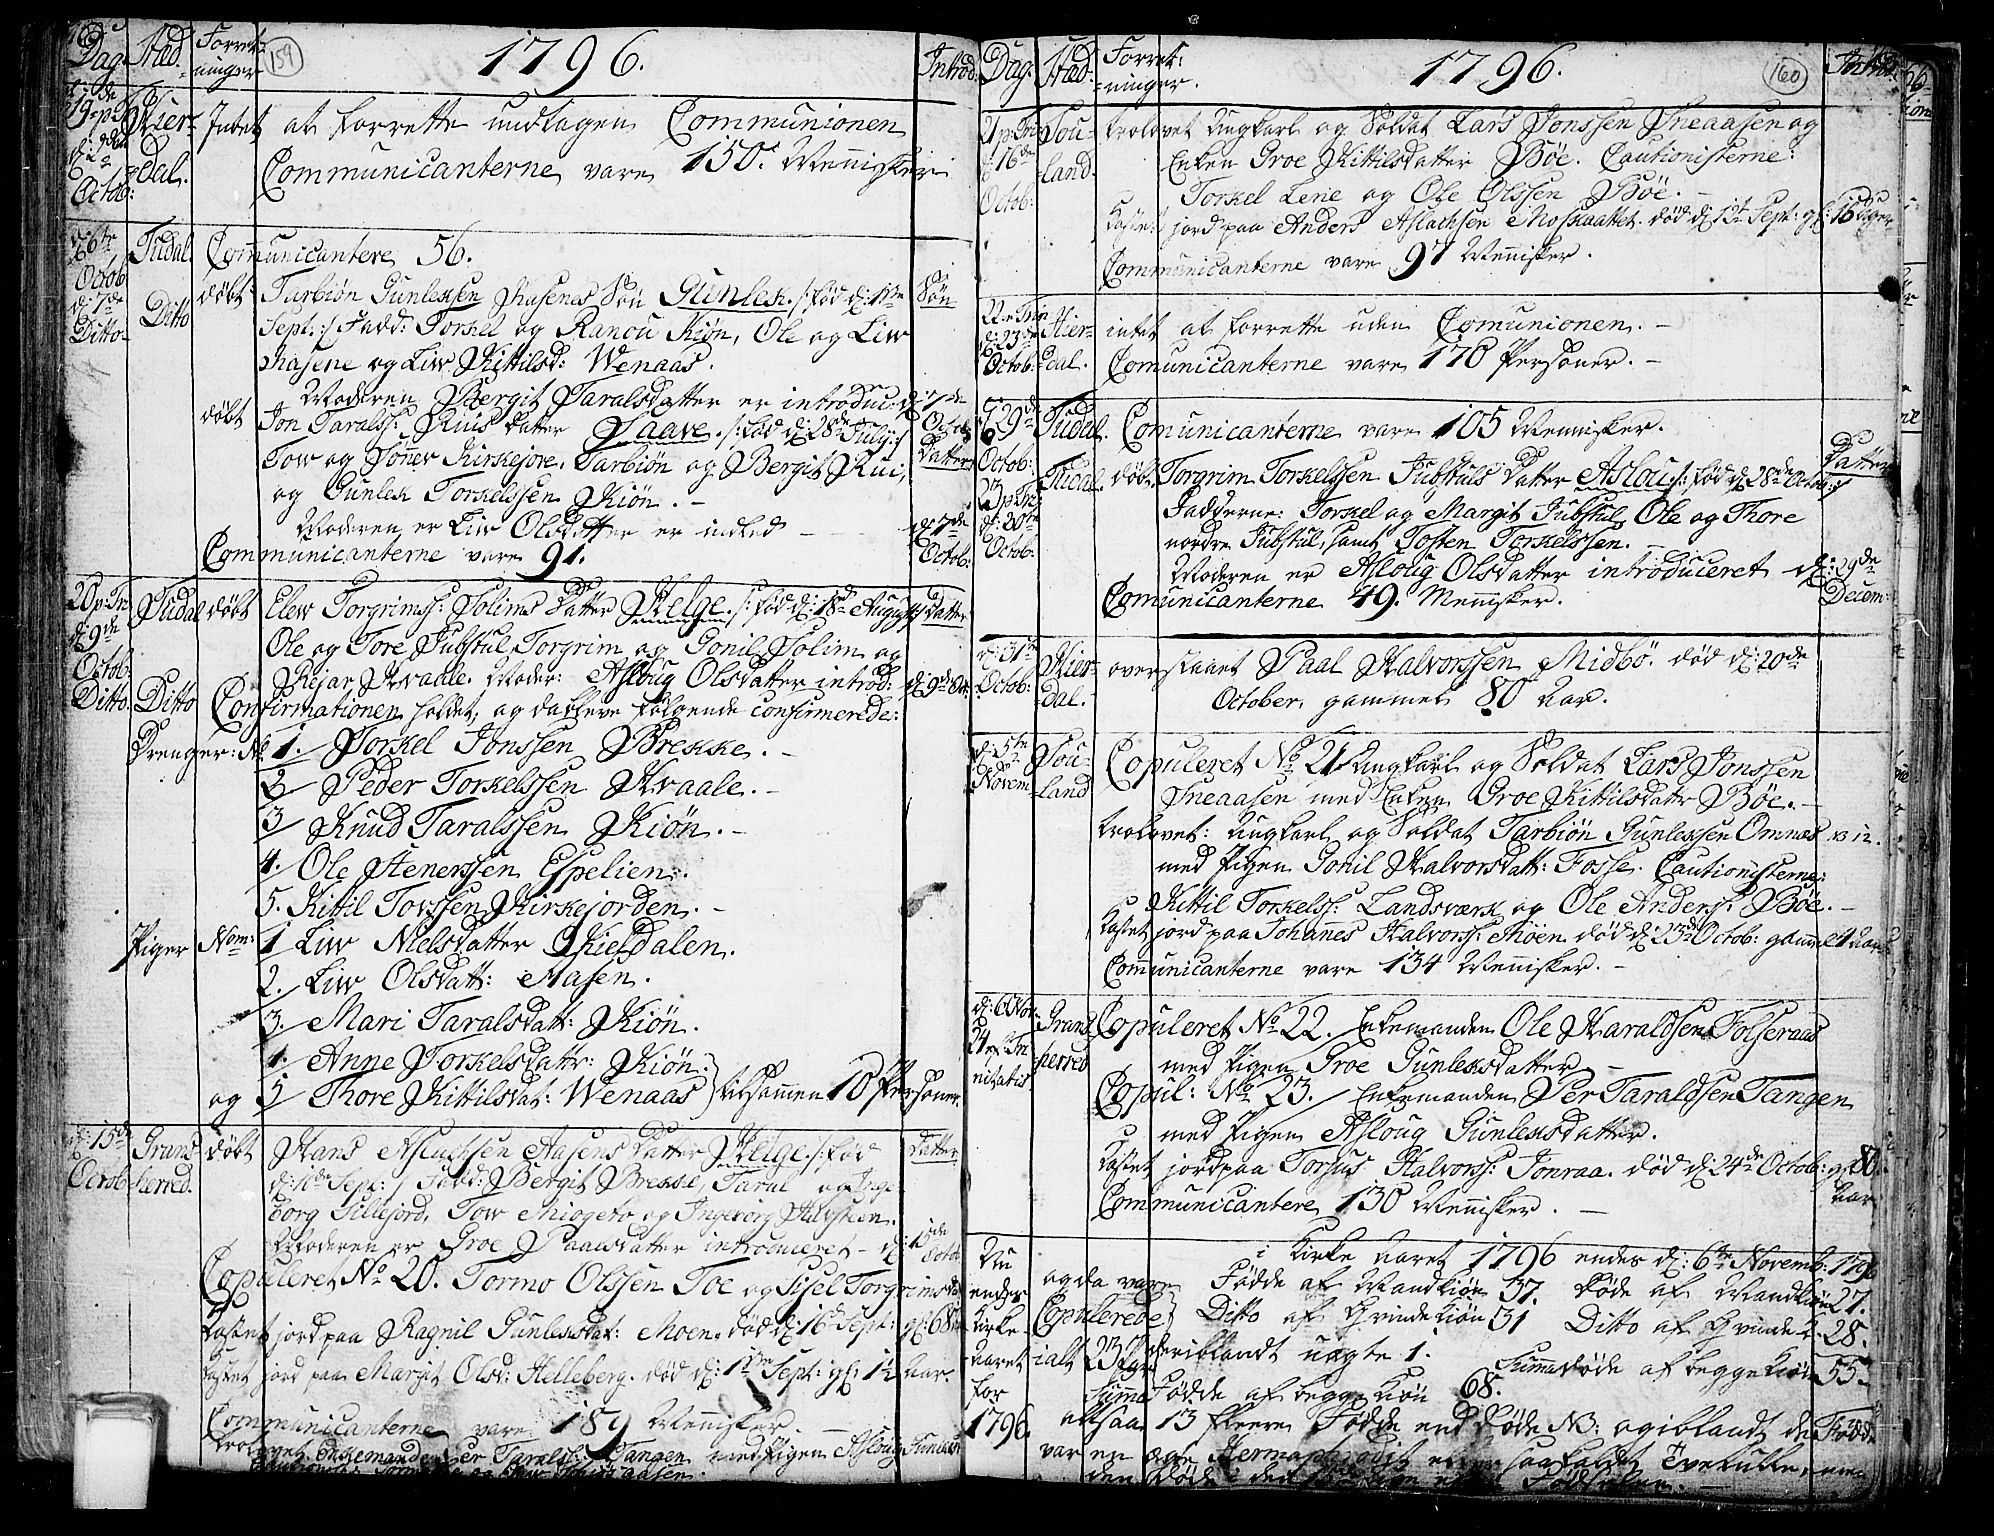 159
Dag. Stæd. Forret-
ninger
1796.
Introd.
19 p: T
Hier-
dal.
Octob:
Intet at forrette undtagen Communionen
Communicanterne vare 150. Mennisker
d: 6te
Octob
Tudal.
Communicantere 56.
d: 7de
Ditto
Ditto
døbt
Tarbiön Gunleksen Aasenes Søn Gunlek. /: fød d:
Søn
Sept: / Fadd: Torkel og Rancu Kiön, Ole og Liw
Aasene og Liw Kittilsd: Wenaas.
Moderen Bergit Taralsdatter er introduc: d: 7de
Octob
døbt
Jon Taralss: Ruis Datter Saave. /: fød d: 28de July :/
Datter
Tow og Gönner Kirkejore. Tarbiön og Bergit Rui,
og Gunlek Torkelssen Kiön. -
Moderen er Liw Olsdatter er indled - d: 7de
Octob:
Communicanterne vare 91.
20 p: Tr:
d: 9de
Octob:
Tudal
døbt
Elew Torgrimss: Solims Datter Helge. /: fød d: 18de August :/
Datter
Ole og Tore Jubstul, Torgrim og Gonil Solim og
Rejar Kvaale. Moder: Asloug Olsdatter introd: d: 9de Oct:
Ditto. Ditto
Confirmationen holdet, og da bleve følgende confirmerede:
Drenger: No
1. / Torkel Jonssen Brekke. -
2 / Peder Torkelssen Kvaale. -
3 / Knud Taralssen Kiön. -
4. / Ole Stenerssen Espelien.
5. Kittil Tovssen Kirkejorden. -
Piger Nom:
1 Liw Nielsdatter Kieldalen.
2. Liw Olsdatt: Aasen.
3. / Mari Taralsdatt: Kiön.
4. Anne Torkelsdattr: Kiön.
og 5 / Thore Kittilsdat: Wenaas } tilsammen 10 Personer.
d: 15de
Octob
Grans-
herred.
døbt
Hans Aslachsen Aasens Datter Helge. /: fød
Datter.
Sept: / Fadd: Bergit Brekke, Taral og Inge-
borg Lillejord, Tow Miogeto og Ingeborg
Moderen er Groe Paalsdatter introduceret - d: 15de
Octob
Copuleret No 20. Tormo Olssen Toe og Sisel Torgrimsd:
Kastet jord paa Ragnil Gunleksdat: Moen. død d: 16d Sept: gl: 68
Kastet jord paa Margit Olsd: Helleberg. død d: Sept: gl: 1½ Aar.
Communicanterne vare 189 Mennisker. -
trolovet Enkemanden Per Taralss: Tangen med Pigen Asloug Gunleksd:
160
Dag. Stæd. Forret-
ninger.
1796.
21 p: Tr:
d: 16de
Octob:
Sou-
land.
trolovet Ungkarl og Soldat Lars Jonssen Sneaasen og
Enken Groe Kittilsdatter Bøe. Cautionisterne:
Torkel Lene og Ole Olssen Bøe. -
Kastet jord paa Anders Aslachsen Moskaattet. død d: 13de Sept: gl: 16
Communicanterne vare 97 Mennisker.
22 p: Trin
d: 23de
Octob:
Hier-
dal.
intet at forrette uden Comunionen. -
Comunicanterne vare 170 Personer. -
d: 29de
Octob:
Tudal.
Comunicanterne vare 105 Mennisker.
23 p: Tr:
Octob:
Tudal.
døbt
Torgrim Torkelssen Jubstuls Datter Aslou /: fød d: 28de Octob: :/
Datter
Fadderne: Torkel og Margit Jubstul, Ole og Thore
nordre Jubstul, samt Tosten Torkelssen. -
Moderen er Asloug Olsdatter introduceret d: 29de
Decem:
Comunicanterne 49. Mennisker.
d: 31te
Octob:
Hier-
dal.
overskaaret Paal Halvorssen Midbö. død d: 20de
October, gammel 80 Aar.
d: 5te
Novem-
Sou-
land
Copuleret No 21 Ungkarl og Soldat Lars Jonssen
Sneaasen med Enken Groe Kittilsdattr Bøe. -
trolovet: Ungkarl og Soldat Tarbiön Gunleksen Omnæs
med Pigen Gonil Halvorsdatt: Fosse. Cautionisterne:
Kittil Torkelss: Landsværk og Ole Anderss: Bøe. -
Kastet jord paa Johanes Halvorss: Moen. død d: 23de Octob: gammel
Communicanterne vare 134 Mennisker. -
d: 6 Nov:
24 p: Tri
nitatis
Grans
herred
Copuleret No 22. Enkemanden Ole Haraldsen Folseraas
med Pigen Groe Gunleksdatter -
Copul: No 23. / Enkemanden Per Taraldsen Tangen
med Pigen Asloug Gunleksdatter.
Kastet jord paa Torjus Halvorss: Jonraa. død d: 24de Octob: gl: 80.
Aar
Communicantere 130 Mennisker. -
Nu
endes
Kirke-
Aaret
for
1796.
i Kirke Aaret 1796 endes d: 6te Novemb: 1796
og da vare Fødde af Mandkiön 37. Døde af Mandkiön 27.
Copulerede Ditto af Qvindekiön 31 Ditto af Qvindek. 28.
ialt 23 Par deriblandt uægte 1. Summa døde af begge kiön 55.
Summa Fødde af begge Kiön 68.
altsaa 13 fleere Fødde end Døde NB: og iblandt de Fødde
var en Hermaphrodit eller saakaldet Tvekulle,